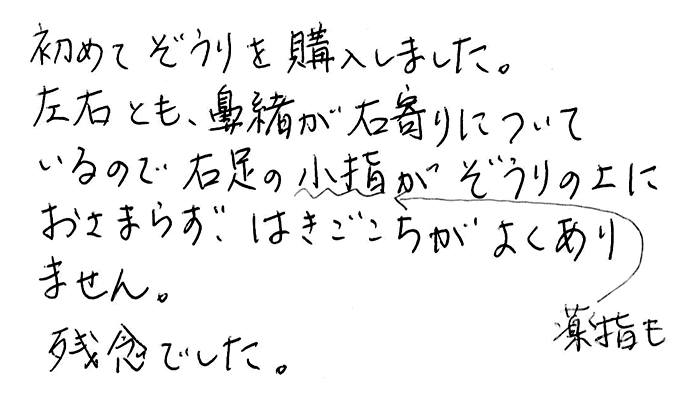 初めてぞうりを購入しました。
左右とも、鼻緒が右寄りについて
いるので右足の小指がぞうりの上に
おさまらず、はきごこちがよくあり
ません。
薬指も
残念でした。